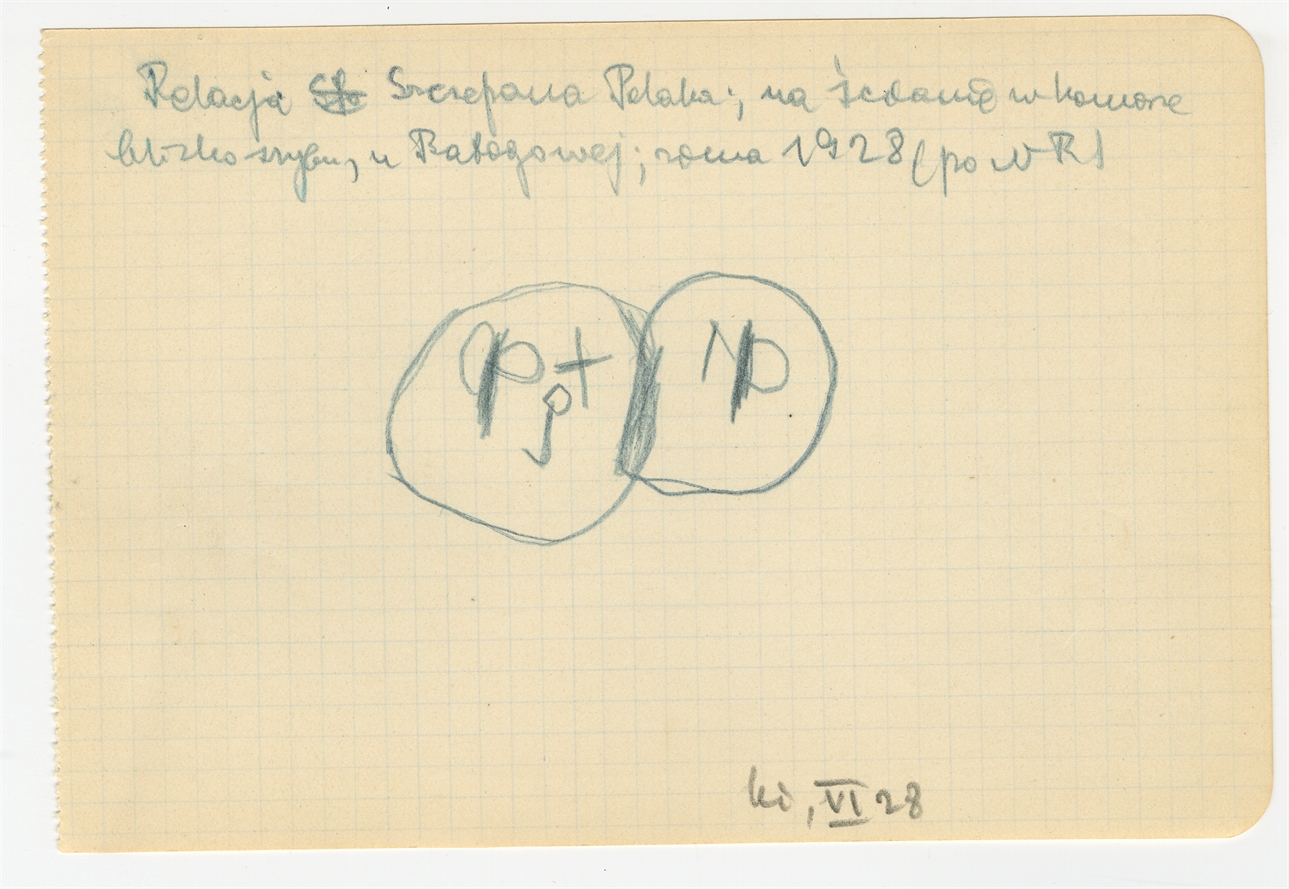 Relacja Szczepana Polaka; na ścianie w komorze
blizko szybu, u Batogowej; zima 1928 (po N R)
Np
ki, VI 28